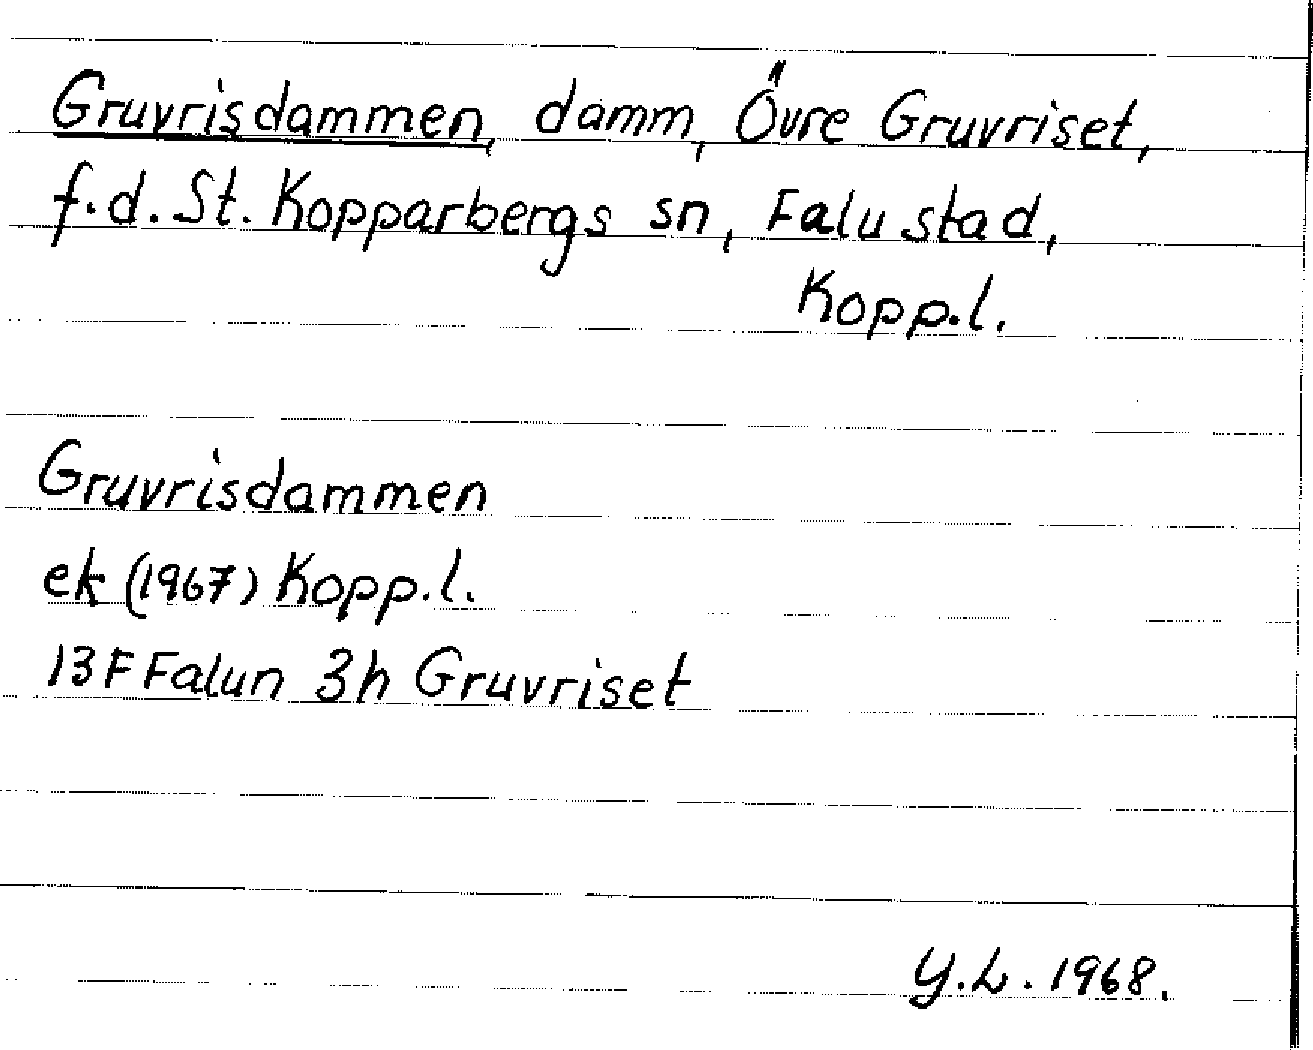 Gruvrisdammen, damm, Övre Gruvriset,
f.d. St. Kopparbergs sn, Falu stad,
Kopp.l.
Gruvrisdammen
ek (1967) Kopp.l.
13F Falun 3h Gruvriset
Y.L. 1968.